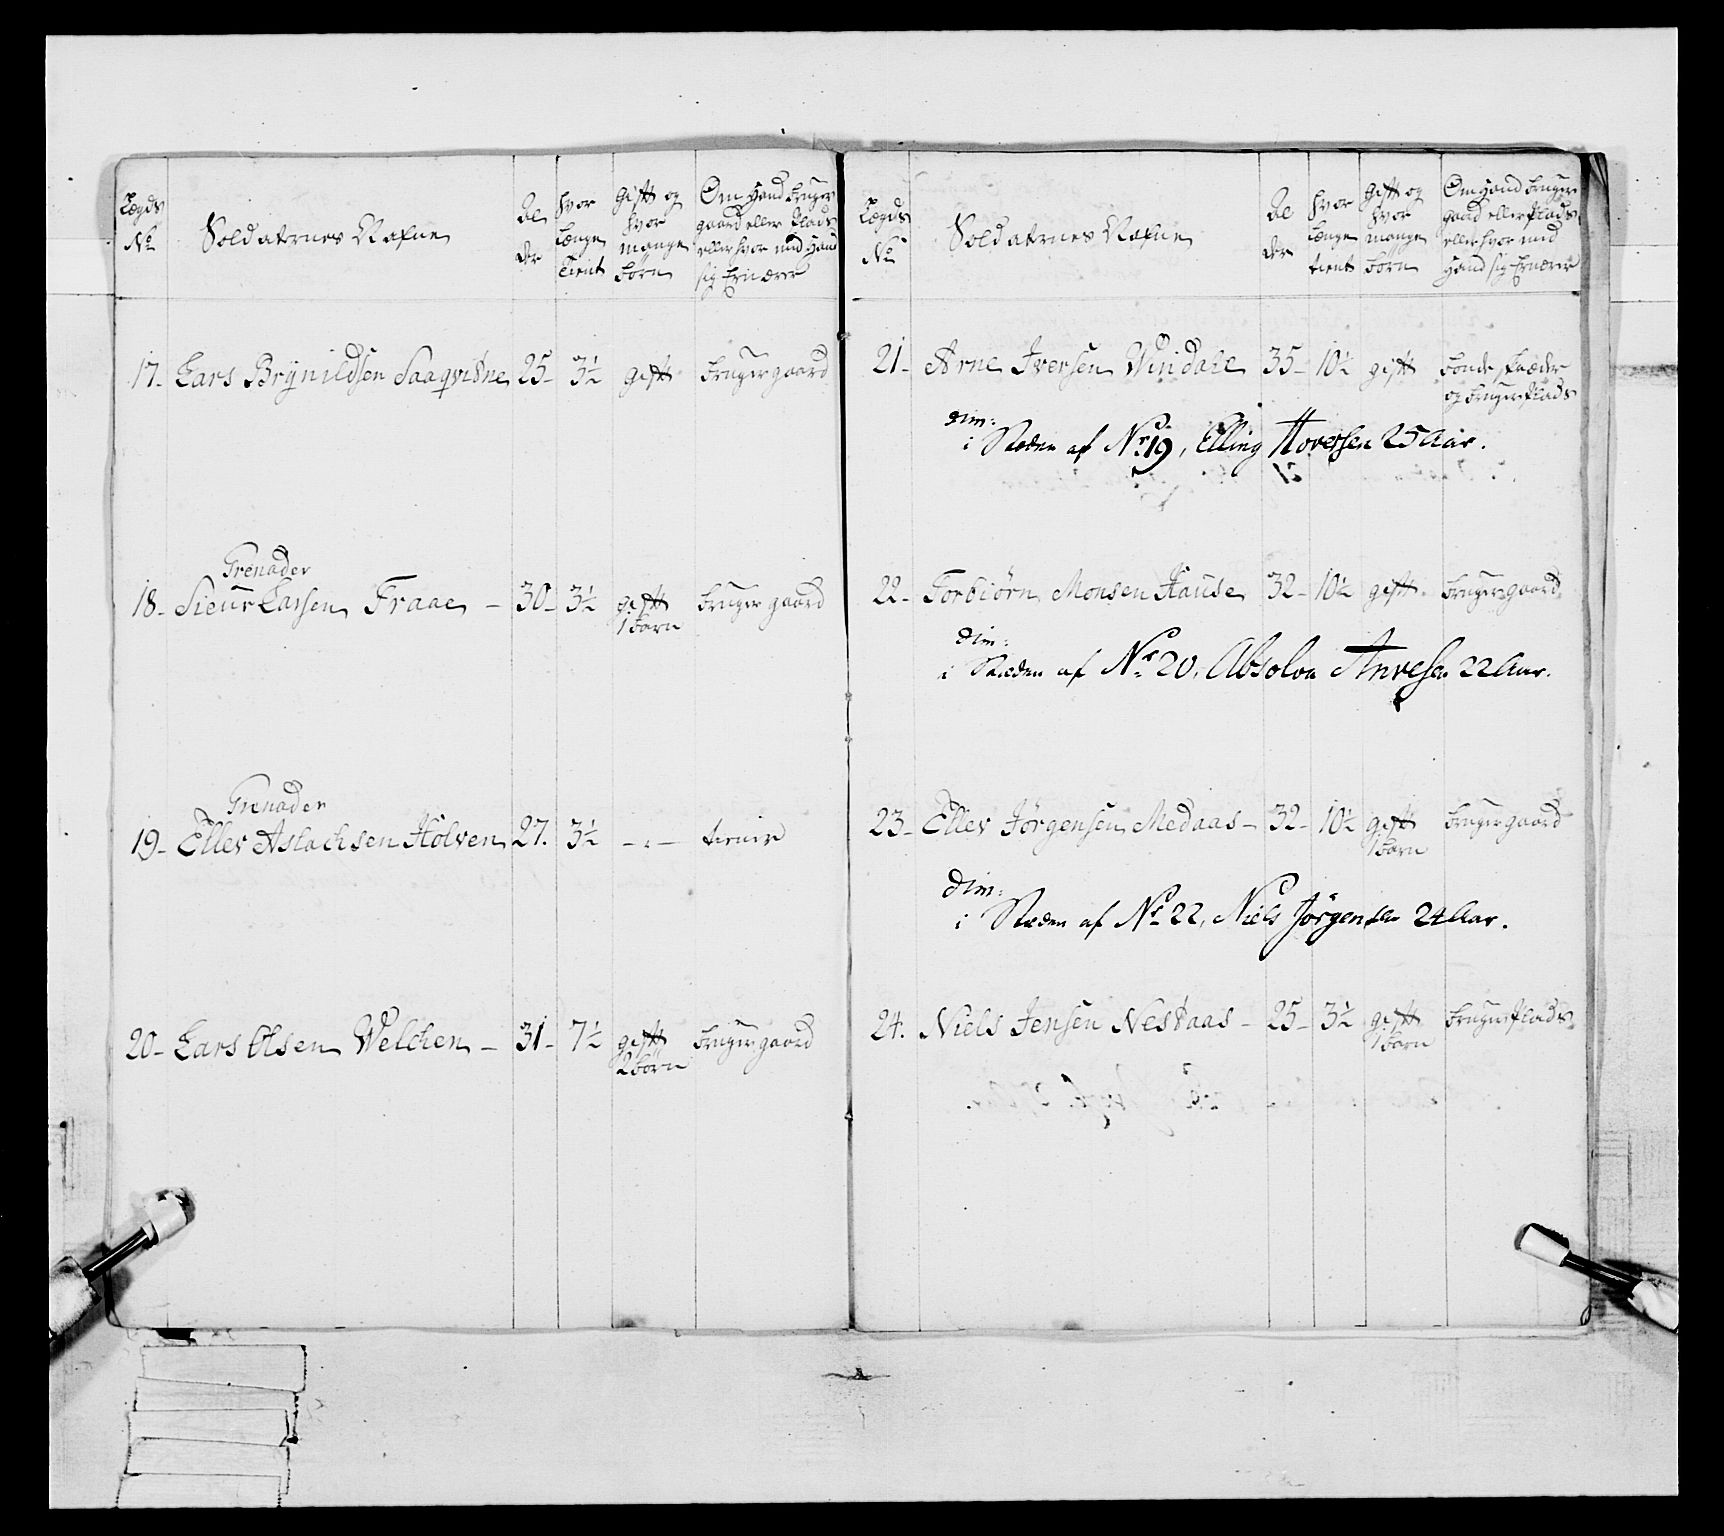 Lægds No
Soldaternes Nafne
Al der
hvor Længe tient
Gift og hvor mange børn
Om Hand bruger gaard eller Plads eller hvor med Hand sig Ernærer
17. Lars Brynildsen Saaqvidne 25 3½ gift bruger gaard
Grenader
18. Sieur Larsen Fraae 30 3½ gift 1 barn bruger gaard
Grenader
19. Ellev Aslachsen Holven 27. 3½ - . - tienir
20. Lars Olsen Welchen 31 7½ gift 2 børn bruger gaard
Lægds No
Soldaternes Nafne
Al der
hvor Længe tient
Gift og hvor mange børn
Om Hand bruger gaard eller Plads eller hvor med Hand sig Ernærer
21. Arne Iversen Windahl 35 10½ gift bonde skræder
og bruger Plads
dim:
i Stæden af Nr 19, Elling Hoversen 25 Aar.
22. Torbiørn Monsen Hause 32 10½ gift bruger gaard
dim:
i Stæden af Nr 20, Absolon 22 Aar.
23. Ellev Jørgensen Medaas 32 10½ gift 1 barn bruger gaard
dim:
i Stæden af Nr 22, Niels Jørgensen 24 Aar.
24. Niels Jensen Nestaas 25 3½ gift 1 barn bruger Plads